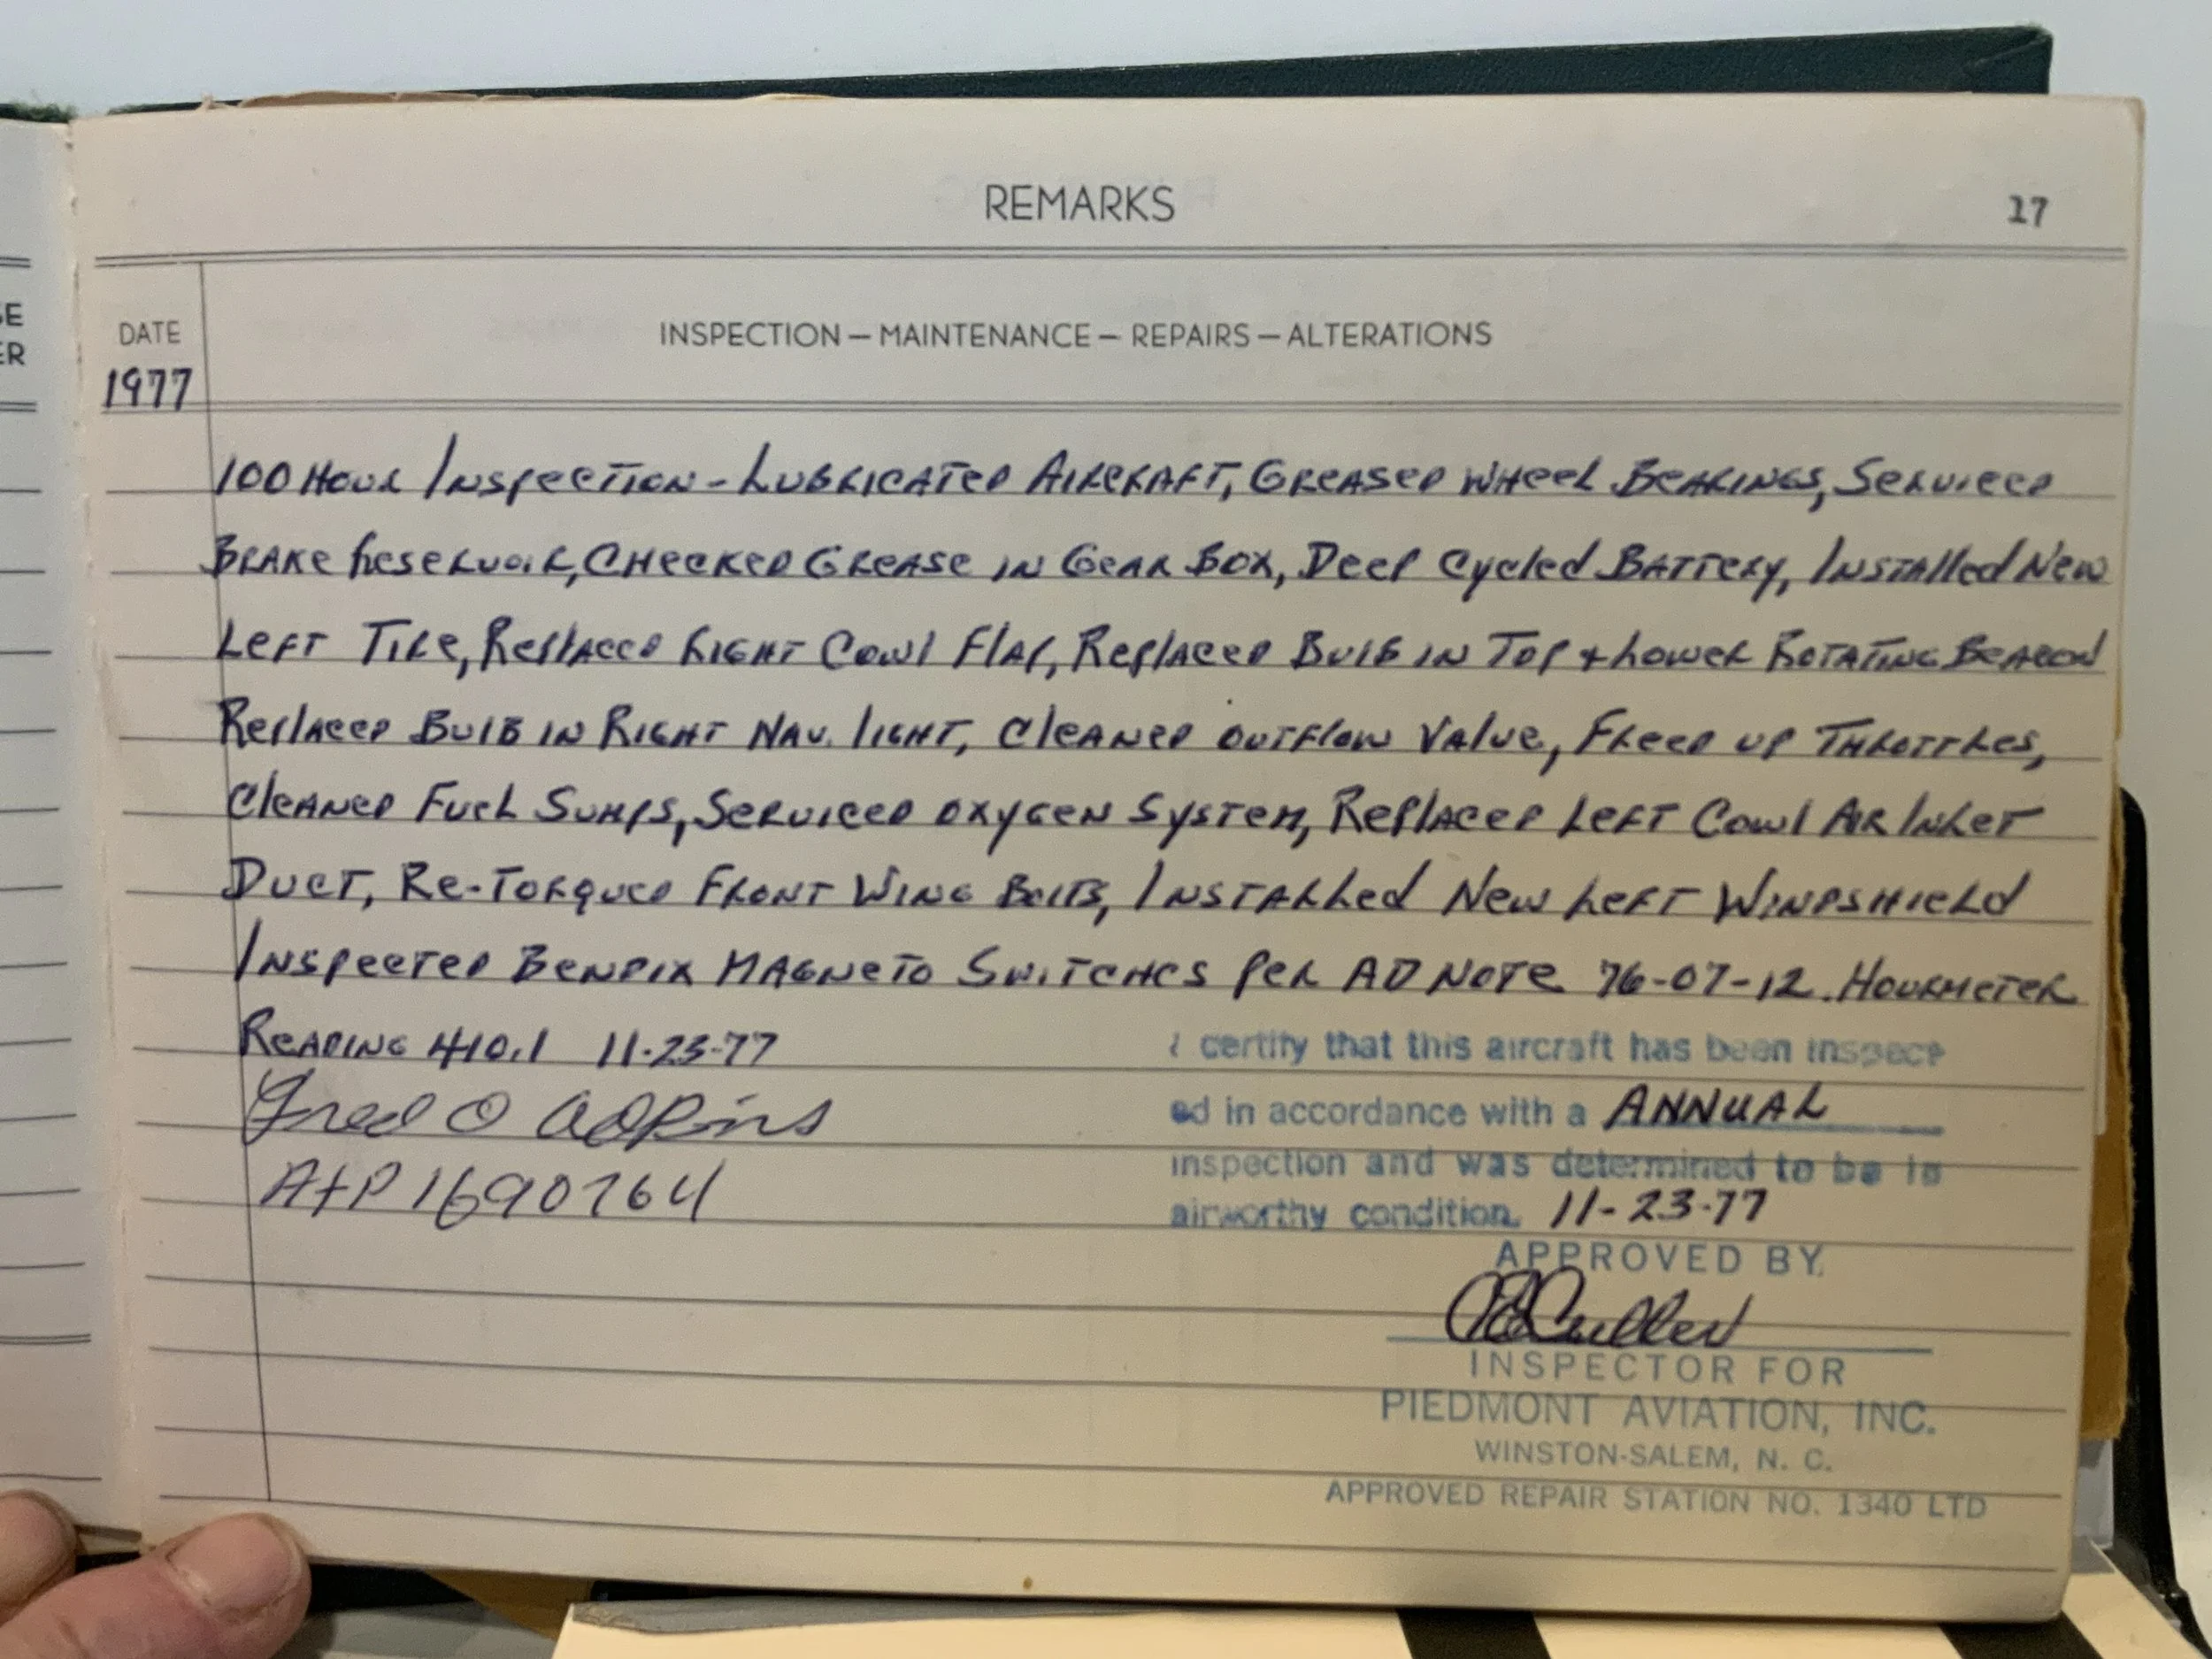 REMARKS
17
SE
ER
DATE
INSPECTION — MAINTENANCE — REPAIRS — ALTERATIONS
1977
100 Hour Inspection - Lubricated Aircraft, Greased Wheel Bearings, Serviced
Brake Reservoir, Checked Grease in Gear Box, Deep Cycled Battery, Installed New
Left Tire, Replaced Right Cowl Flap, Replaced Bulb in Top + Lower Rotating Beacon
Replaced Bulb in Right Nav. light, Cleaned outflow Valve, Freed up Throttles,
Cleaned Fuel Sumps, Serviced oxygen System, Replaced Left Cowl Air Inlet
Duct, Re-Torqued Front Wing Bolts, Installed New Left Windshield
Inspected Bendix Magneto Switches per AD Note 76-07-12. Hourmeter
Reading 410.1 11-23-77
Fred O Adkins
A+P 1690764
I certify that this aircraft has been inspect
ed in accordance with a ANNUAL
inspection and was determined to be in
airworthy condition. 11-23-77
APPROVED BY
Cullen
INSPECTOR FOR
PIEDMONT AVIATION, INC.
WINSTON-SALEM, N. C.
APPROVED REPAIR STATION NO. 1340 LTD